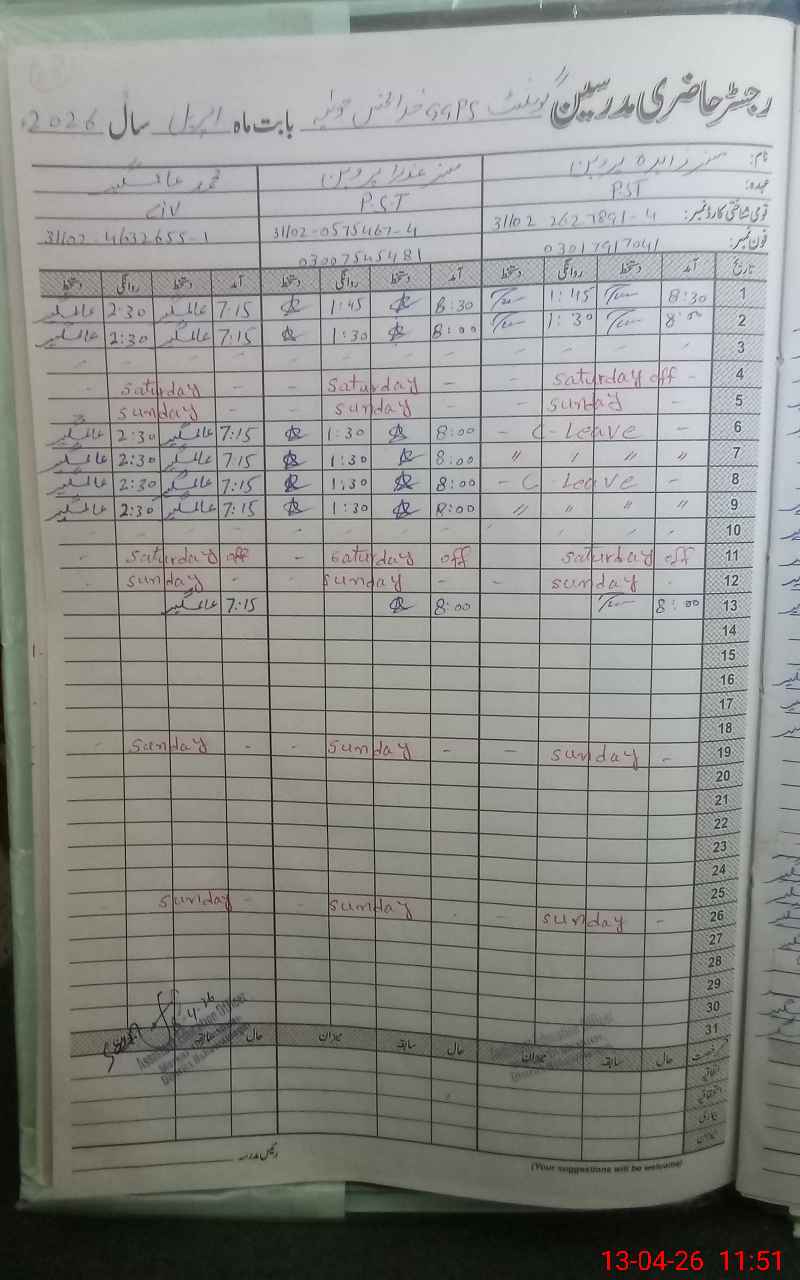 رجسٹر حاضری مدرسین گورنمنٹ GGPS خدا بخش بابت ماہ اپریل سال 2026
نام: مسز زاہدہ پروین مسز عذرا پروین محمد عالمگیر
عہدہ: PST P.S.T C/IV
قومی شناختی کارڈ نمبر: 31102 2627891-4 31102-0575467-4 31102-4632655-1
فون نمبر: 03017917041 03007545481
تاریخ آمد دستخط روانگی دستخط آمد دستخط روانگی دستخط آمد دستخط روانگی دستخط
1 8:30 1:45 8:30 1:45 7:15 عالمگیر 2:30 عالمگیر
2 8:00 1:30 8:00 1:30 7:15 عالمگیر 2:30 عالمگیر
3
4 - saturday off - saturday - - saturday -
5 - sunday - sunday - - sunday
6 - C-Leave - 8:00 1:30 7:15 عالمگیر 2:30 عالمگیر
7 " " " " 8:00 1:30 7:15 عالمگیر 2:30 عالمگیر
8 - C-Leave - 8:00 1:30 7:15 عالمگیر 2:30 عالمگیر
9 " " " " 8:00 1:30 7:15 عالمگیر 2:30 عالمگیر
10
11 saturday off off saturday - off saturday -
12 - sunday - - sunday - - sunday
13 8:00 8:00 7:15 عالمگیر
14
15
16
17
18
19 - sunday - - sunday - - sunday -
20
21
22
23
24
25
26 - sunday - sunday - sunday -
27
28
29
30
31
رخصت حال سابقہ میزان حال سابقہ میزان حال سابقہ
اتفاقیہ
استحقاقیہ
بیماری
میزان
Assistant Education Officer
رئیس مدرسہ
(Your suggestions will be welcome)
13-04-26 11:51